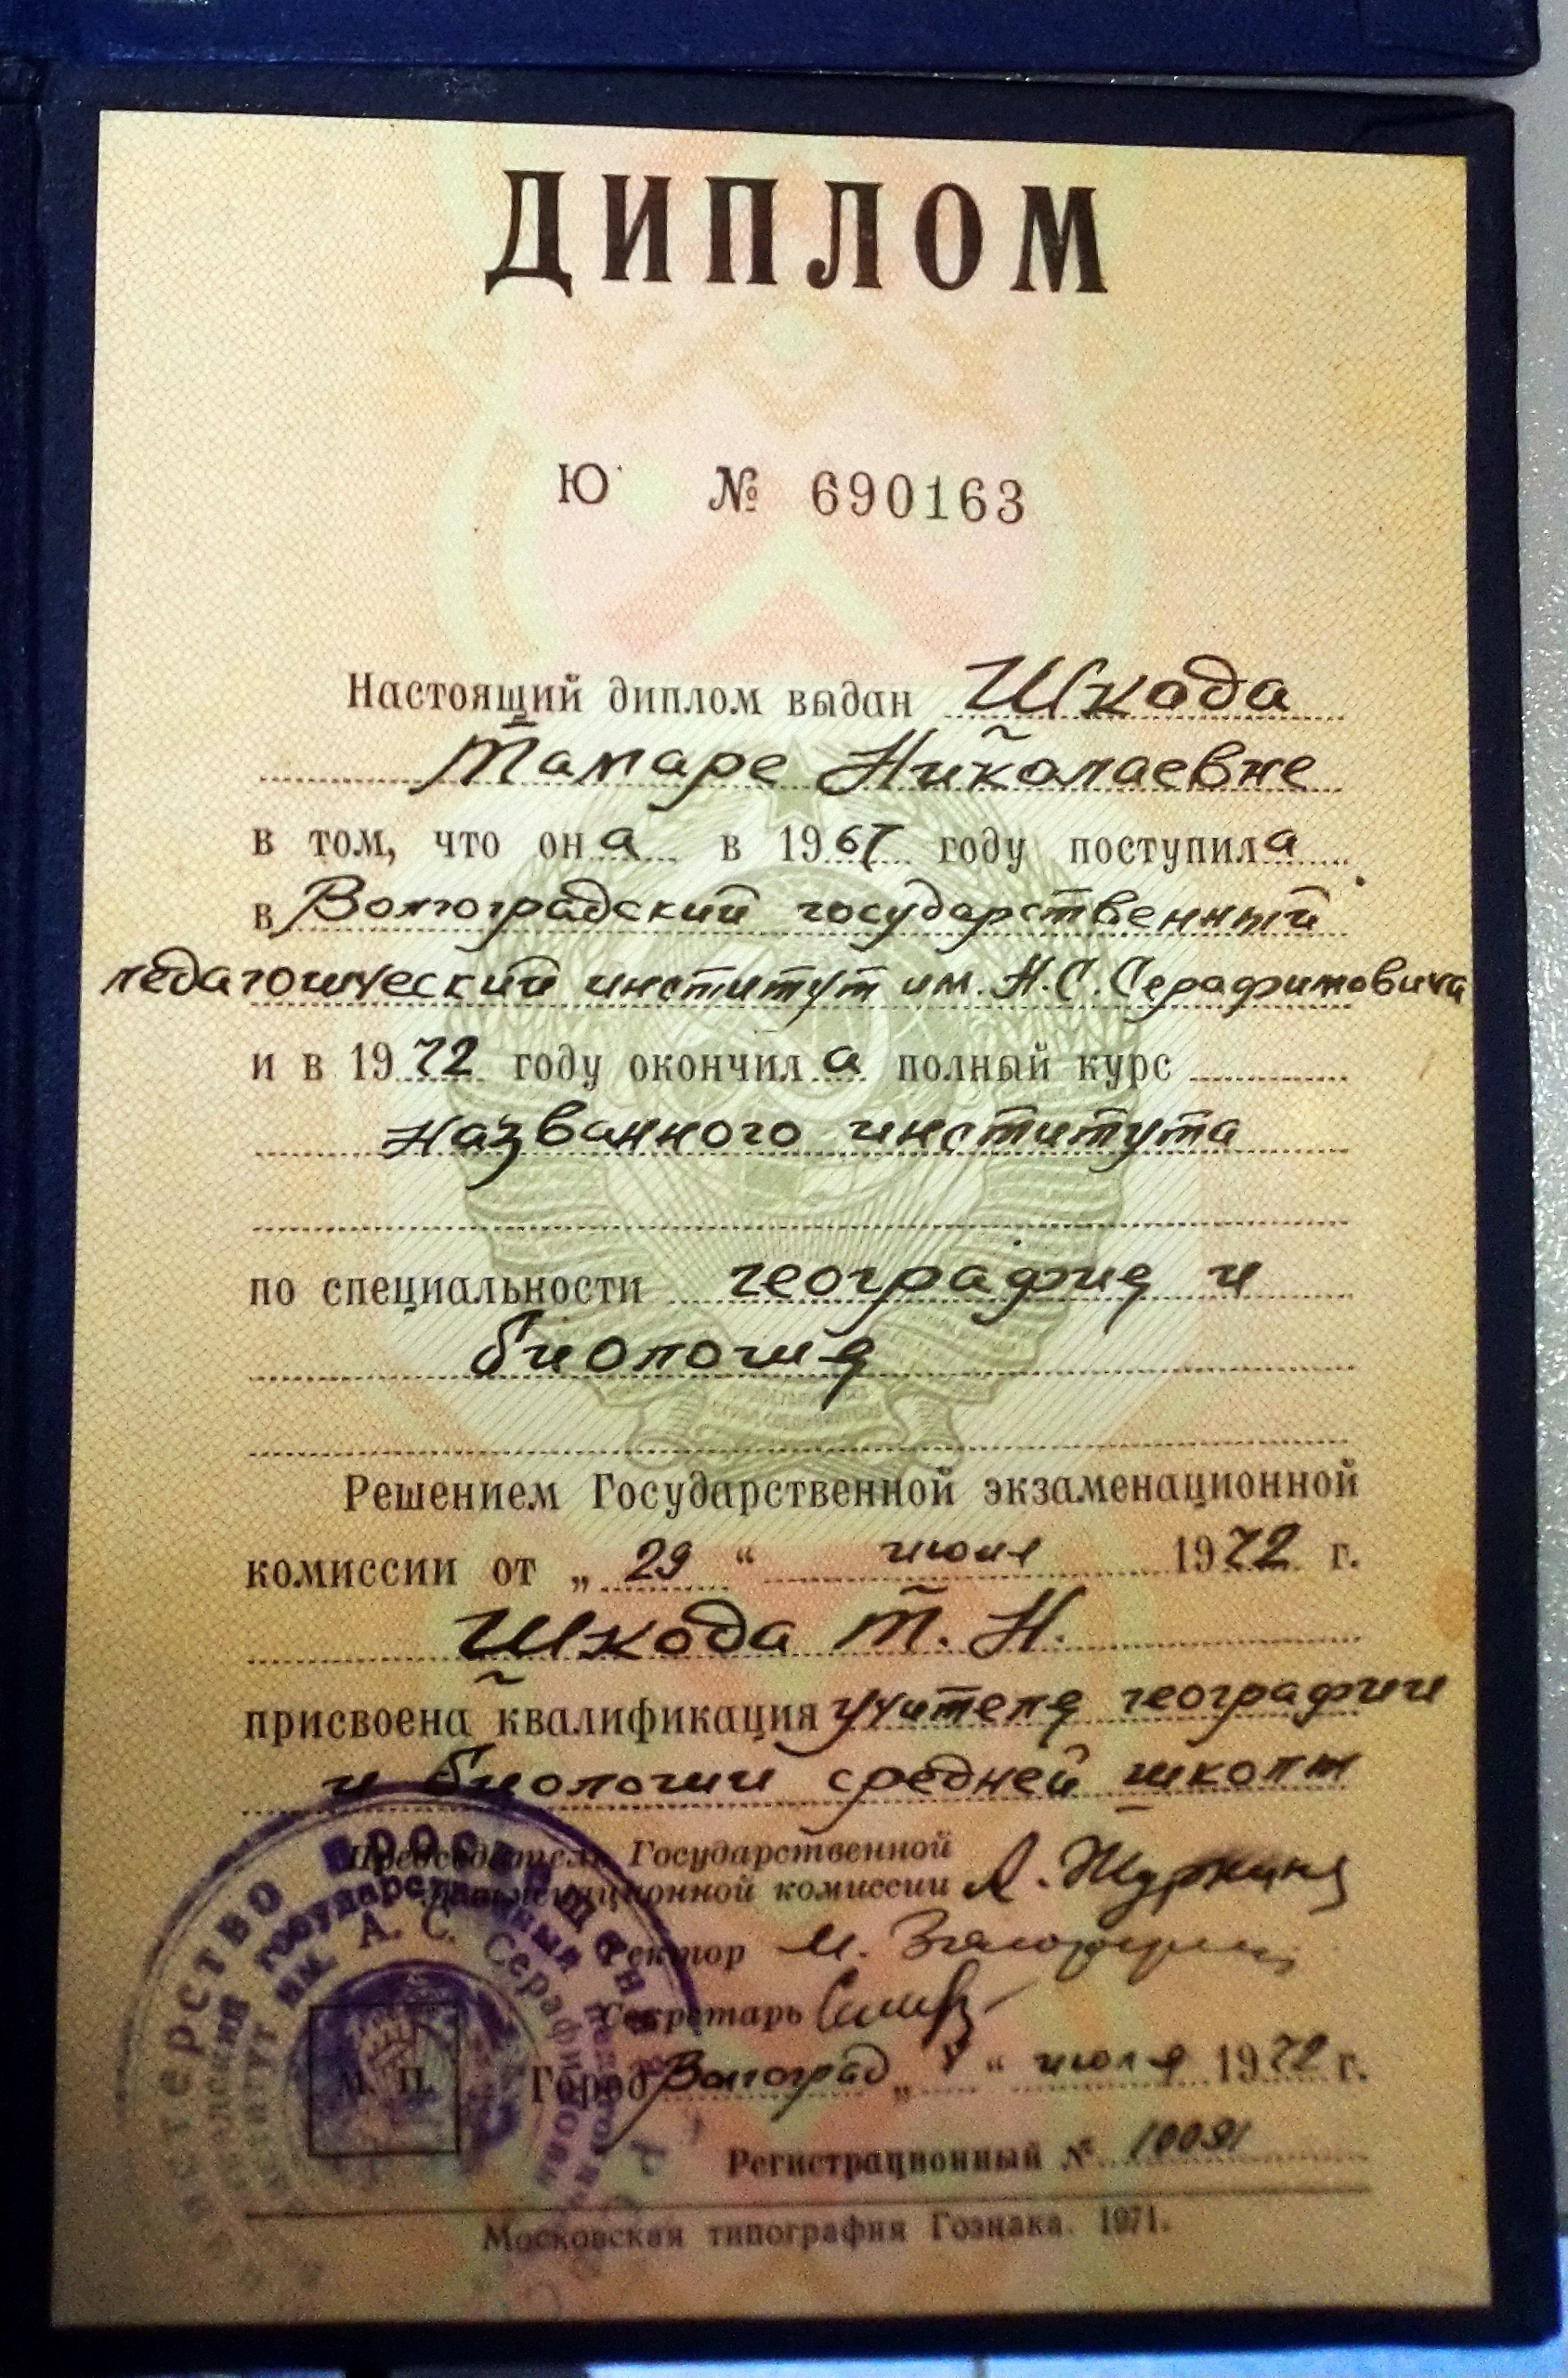 ДИПЛОМ
Ю № 690163
Настоящий диплом выдан Шкода
Тамаре Николаевне
в том, что она в 1967 году поступила
в Волгоградский государственный
педагогический институт им. А.С. Серафимовича
и в 1972 году окончила полный курс
названного института
по специальности география и
биология
Решением Государственной экзаменационной
комиссии от „29“ июня 1972 г.
Шкода Т. Н.
присвоена квалификация учителя географии
и биологии средней школы
Председатель Государственной
экзаменационной комиссии
Ректор
Секретарь
Город Волгоград „ “ июля 1972 г.
М. П.
Регистрационный № 10091
Московская типография Гознака. 1971.